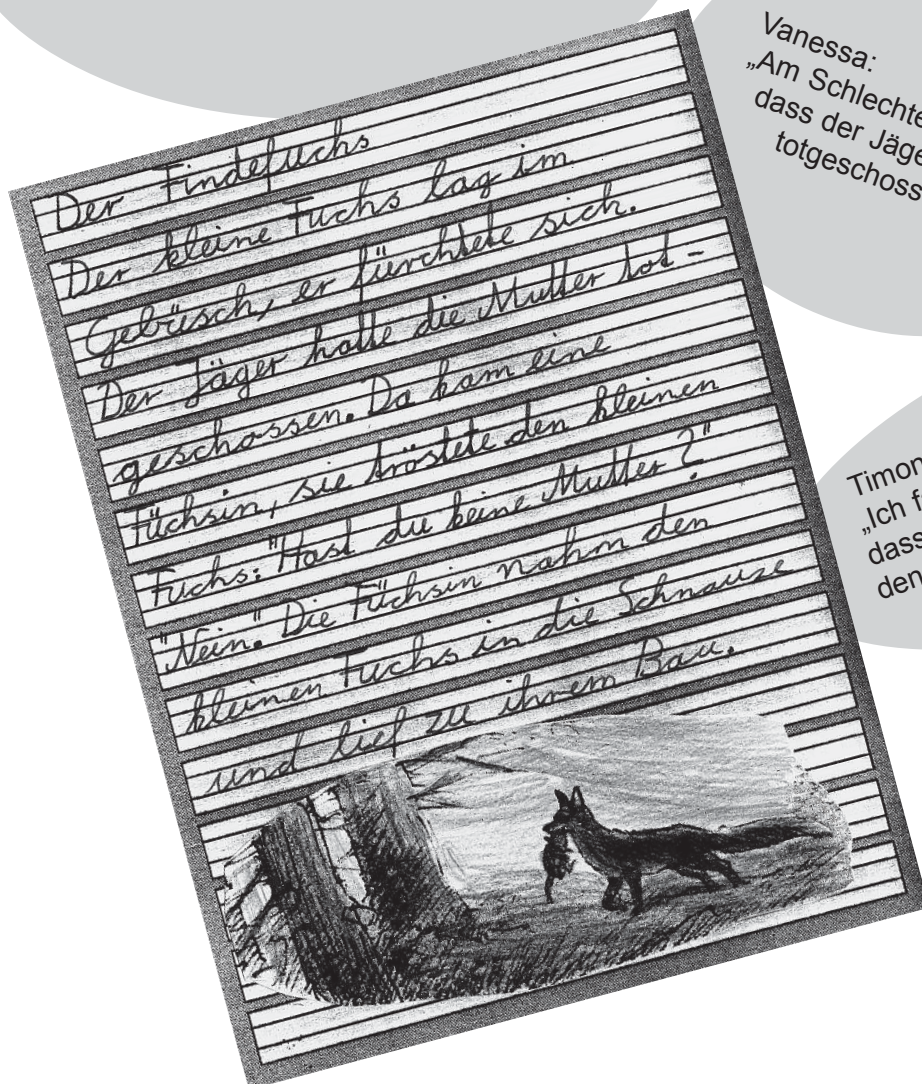 Der Findefuchs
Der kleine Fuchs lag im
Gebüsch, er fürchtete sich.
Der Jäger hatte die Mutter tot-
geschossen. Da kam eine
Füchsin, sie tröstete den kleinen
Fuchs: "Hast du keine Mutter?"
"Nein". Die Füchsin nahm den
kleinen Fuchs in die Schnauze
und lief zu ihrem Bau.
Vanessa:
„Am Schlechte
dass der Jäge
totgeschoss
Timon
„Ich f
dass
den